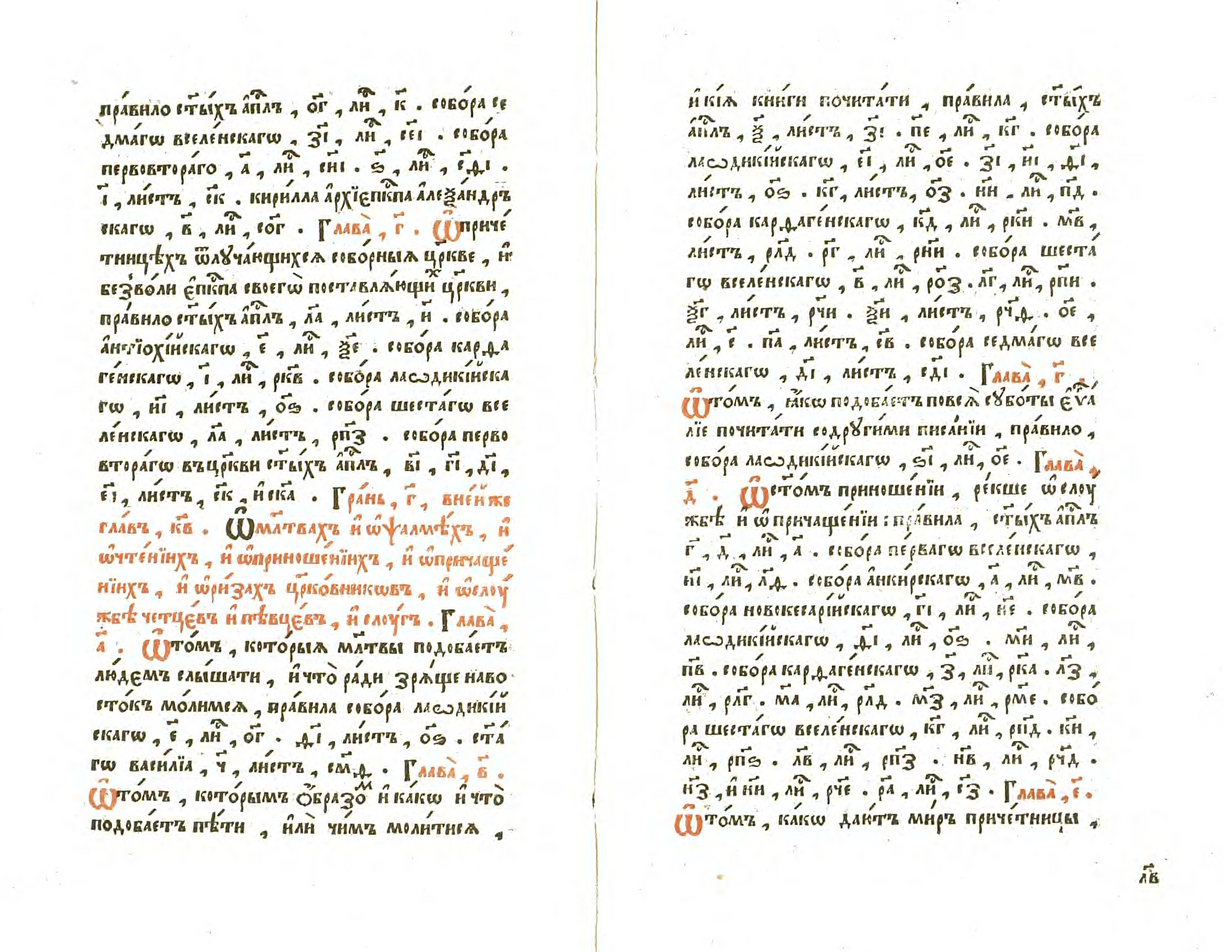 пра́вило ст҃ы́хъ а҆п҃лъ , о҃г , ли́ , к҃ . собо́ра се
дма́гѡ вселе́нскагѡ , з҃і , ли́ , се҃і . собо́ра
первовтора́го , а҃ , ли́ , си҃і . ѕ҃ , ли́ , сд҃і .
і҃ , ли́стъ , с҃к . кирилла а҆рхїєпк҃па алеѯа́ндръ
скагѡ , в҃ , ли́ , со҃г . Глава̀ , г҃ . Ѿ приче́
тницѣхъ ѿлуча́ющихсѧ собо́рныѧ цр҃кве , и҆
безво́ли є҆пк҃па своегѡ̀ поставлѧ́ющихъ цр҃кви ,
пра́вило ст҃ы́хъ а҆п҃лъ , л҃а , ли́стъ , и҃ . собо́ра
а҆нтїохі́йскагѡ , е҃ , ли́ , ѯ҃е . собо́ра карѳа
ге́нскагѡ , і҃ , ли́ , рк҃в . собо́ра лаѡдикі́йска
гѡ , н҃і , ли́стъ , о҃ѕ . собо́ра шеста́гѡ все
ле́нскагѡ , л҃а , ли́стъ , рп҃з . собо́ра перво
втора́гѡ въцр҃кви ст҃ы́хъ а҆п҃лъ , в҃і , г҃і , д҃і ,
е҃і , ли́стъ , с҃к , и҆ ск҃а . Гра́нь , г҃ , вне́йже
гла́въ , к҃в . Ѿ мл҃твахъ и҆ ѡ҆ ѱалмѣ́хъ , и҆
ѡ҆чте́нїихъ , и҆ ѡ҆приноше́нїихъ , и҆ ѡ҆причаще́
нїихъ , и҆ ѡ҆ри́захъ цр҃ко́вникѡвъ , и҆ ѡ҆слоу́
жбѣ четце́въ и҆ пѣвце́въ , и҆ слоу́гъ . Глава̀ ,
а҃ . Ѿ то́мъ , кото́рыѧ мл҃твы подоба́етъ
лю́демъ слы́шати , и҆ что̀ ра́ди зрѧ́ще наво
сто́къ мо́лимсѧ , пра́вила собо́ра лаѡдикі́й
скагѡ , е҃ , ли́ , о҃г . д҃і , ли́стъ , о҃ѕ . ст҃а́
гѡ васи́лїа , ч҃ , ли́стъ , см҃д . Глава̀ , в҃ .
Ѿ то́мъ , кото́рымъ о҆́бразомъ и҆ ка́кѡ и҆ что̀
подоба́етъ пѣ́ти , и҆лѝ чи́мъ моли́тисѧ ,
и҆ кі́ѧ кни́ги почита́ти , пра́вила , ст҃ы́хъ
а҆п҃лъ , ѯ҃ , ли́стъ , з҃і . п҃е , ли́ , к҃г . собо́ра
лаѡдикі́йскагѡ , е҃і , ли́ , о҃е . з҃і , н҃і , д҃і ,
ли́стъ , о҃ѕ . к҃г , ли́стъ , о҃з . н҃и . ли́ , п҃д .
собо́ра карѳаге́нскагѡ , к҃д , ли́ , рк҃и . м҃в ,
ли́стъ , рл҃д . р҃г , ли́ , рн҃и . собо́ра шеста́
гѡ вселе́нскагѡ , в҃ , ли́ , ро҃з . л҃г , ли́ , рп҃и .
ѯ҃г , ли́стъ , рч҃и . ѯ҃и , ли́стъ , рч҃д . о҃е ,
ли́ , с҃ . п҃а , ли́стъ , с҃в . собо́ра седма́гѡ все
ле́нскагѡ , д҃і , ли́стъ , сд҃і . Глава̀ , г҃ .
Ѿ то́мъ , ꙗ҆́кѡ подоба́етъ по всѧ̀ сꙋббо́ты є҆ѵ҃а
лїе почита́ти содрꙋги́ми писа́нїи , пра́вило ,
собо́ра лаѡдикі́йскагѡ , ѕ҃і , ли́ , о҃е . Глава̀ ,
д҃ . Ѿ ст҃о́мъ приноше́нїи , ре́кше ѡ҆ слоу́
жбѣ и҆ ѡ҆ причаще́нїи : пра́вила , ст҃ы́хъ а҆п҃лъ
г҃ , д҃ , ли́ , а҃ . собо́ра пе́рвагѡ вселе́нскагѡ ,
н҃і , ли́ , л҃д . собо́ра а҆нки́рскагѡ , а҃ , ли́ , м҃в .
собо́ра новокесарі́йскагѡ , г҃і , ли́ , н҃е . собо́ра
лаѡдикі́йскагѡ , д҃і , ли́ , о҃ѕ . м҃и , ли́ ,
п҃в . собо́ра карѳаге́нскагѡ , з҃ , ли́ , рк҃а . л҃з ,
ли́ , рл҃г . м҃а , ли́ , рл҃д . м҃з , ли́ , рм҃е . собо́
ра шеста́гѡ вселе́нскагѡ , к҃г , ли́ , рп҃д . к҃и ,
ли́ , рп҃ѕ . л҃в , ли́ , рп҃з . н҃в , ли́ , рч҃д .
н҃з , и҆ н҃и , ли́ , рч҃е . р҃а , ли́ , с҃з . Глава̀ , е҃ .
Ѿ то́мъ , ка́кѡ даю́тъ ми́ръ приче́тницы ,
л҃в